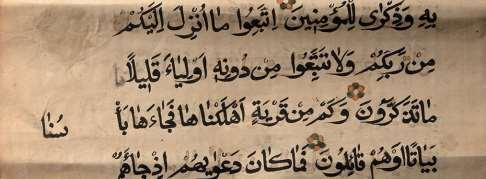 بِهِ وَذِكْرٰى لِلْمُؤْمِنِينَ اِتَّبِعُوا مَا اُنْزِلَ اِلَيْكُمْ
مِنْ رَبِّكُمْ وَلَا تَتَّبِعُوا مِنْ دُونِهِ اَوْلِيَاءَ قَلِيلًا
مَا تَذَكَّرُونَ وَكَمْ مِنْ قَرْيَةٍ اَهْلَكْنَاهَا فَجَاءَهَا بَأْ
سُنَا
بَيَاتًا اَوْ هُمْ قَائِلُونَ فَمَا كَانَ دَعْوٰيهُمْ اِذْ جَاءَهُمْ